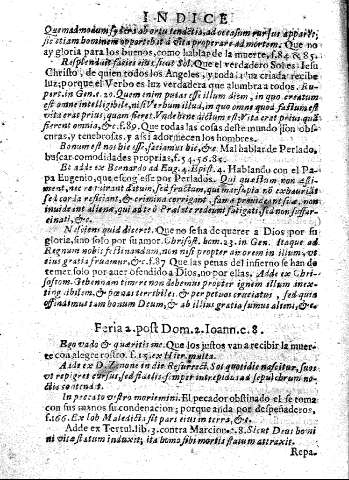 INDICE
Quemadmodum sydera ab ortu tendētia, ad occasum rursus apparēt,
sic etiam hominem oportebat à vita properare ad mortem. Que no
ay gloria para los buenos, como hablarles de la muerte, f.84 & 85.
Resplenduit facies eius, sicut Sol. Que el verdadero Sol es Iesu
Christo, de quien todos los Angeles, y toda alma criada recibe
luz; porque el Verbo es luz verdadera que alumbra a todos. Ru-
pers. in Gen. c.10. Quam enim putas esse illum diem, in quo creatum
est omne intelligibile, nisi Verbum illud, in quo omne quod factum est
vita erat prius, quam fieret. Vnde bene dictum est: Vita erat prius quā
fierent omnia, &c. f.89. Que todas las cosas deste mundo son obs-
curas, y tenebrosas, y assi adormecen los hombres.
Bonum est nos hic esse, faciamus hic, &c. Mal hablar de Perlado,
buscar comodidades proprias, f.54.56.85.
Et adde ex Bernardo ad Eug. 4. Epist. 4. Hablando con el Pa-
pa Eugenio, que escoge por Perlados. Qui quæstum non æsti-
ment, nec requirant ditum, sed fructum, qui marsupia nō exhauriāt
sed corda reficiant, & crimina corrigant, famæ provideant suæ, non
inuideant alienæ, qui adte ò Prælate redeunt fatigati, sed non suffar-
cinati, &c.
Nescieus quid diceret. Que no se ha de querer a Dios por su
gloria, sino solo por su amor. Chrisost. hom. 23. in Gen. Itaque ad
Regnum nobis festinandum, non nisi propter amorem in illum, ut
eius gratia fruamur, &c. f.87 Que las penas del infierno se han de
temer solo por auer ofendido a Dios, no por ellas. Adde ex Chri-
sostom. Gehennam timere non debemus propter ignem illum inex-
tinguibilem, & pœnas terribiles, & perpetuos cruciatus, sed quia
offendimus tam bonum Deum, & ab illius gratia sumus alieni, &c.
Feria 2. post Dom. 2. Ioann. c. 8.
Ego vado & quæritis me. Que los justos van a recibir la muer-
te con alegre rostro. f.15. ex Hier. multa.
Adde ex D. Zenone in die Resurrect. Sol quotidie nascitur, suus
vt repigret cursus, sed fidelis semper intrepidus ad sepulchrum no-
ctis contendit.
In peccato vestro moriemini. El pecador obstinado el se toma
con sus manos su condenacion; porque anda por despeñaderos,
f.166. Ex Iob Maledicta sit pars eius in terra, &c.
Adde ex Tertul. lib. 3. contra Marcion. c. 8. Sicut Deus homi
ni vitæ statum induxit; ita homo sibi mortis statum attraxit.
Repa.